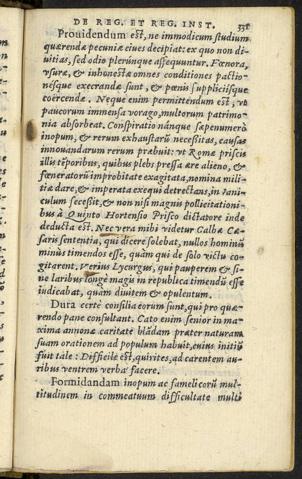 DE REG. ET REG. INST. 331
Prouidendum est, ne immodicum studium
quærendæ pecuniæ eiues decipiat: ex quo non di-
uitias, sed odio plerúnque assequuntur. Fœnora,
vsuræ, & inhonestæ omnes conditiones pactio-
nésque execrandæ sunt, & pœnis supplicijsque
coërcendæ. Neque enim permittendum est, vt
paucorum immensa vorago, multorum patrimo-
nia absorbeat. Conspiratio nánque sæpenumerò
inopum, & rerum exhaustarū necessitas, causas
innouandarum rerum præbuit: vt Romæ priscis
illis tēporibus, quibus plebs pressa ære alieno, &
fœneratorū improbitate exagitata, nomina mili-
tiæ dare, & imperata exequi detrectans, in Iani-
culum secessit, & non nisi magnis pollicitationi-
bus à Quinto Hortensio Prisco dictatore inde
deducta est. Nec vera mihi videtur Galbæ Cæ-
saris sententia, qui dicere solebat, nullos hominū
minùs timendos esse, quàm qui de solo victu co-
gitarent. Verius Lycurgus, qui pauperem & si-
ne laribus longè magis in republica timendū esse
indicabat, quàm diuitem & opulentum.
Dura certè consilia eorum sunt, qui pro quæ-
rendo pane consultant. Cato enim senior in ma-
xima annonæ caritate blādam præter naturam
suam orationem ad populum habuit, cuius initiū
fuit tale: Difficile est, quirites, ad carentem au-
ribus ventrem verba facere.
Formidandam inopum ac famelicorū mul-
titudinem in commeatuum difficultate multi